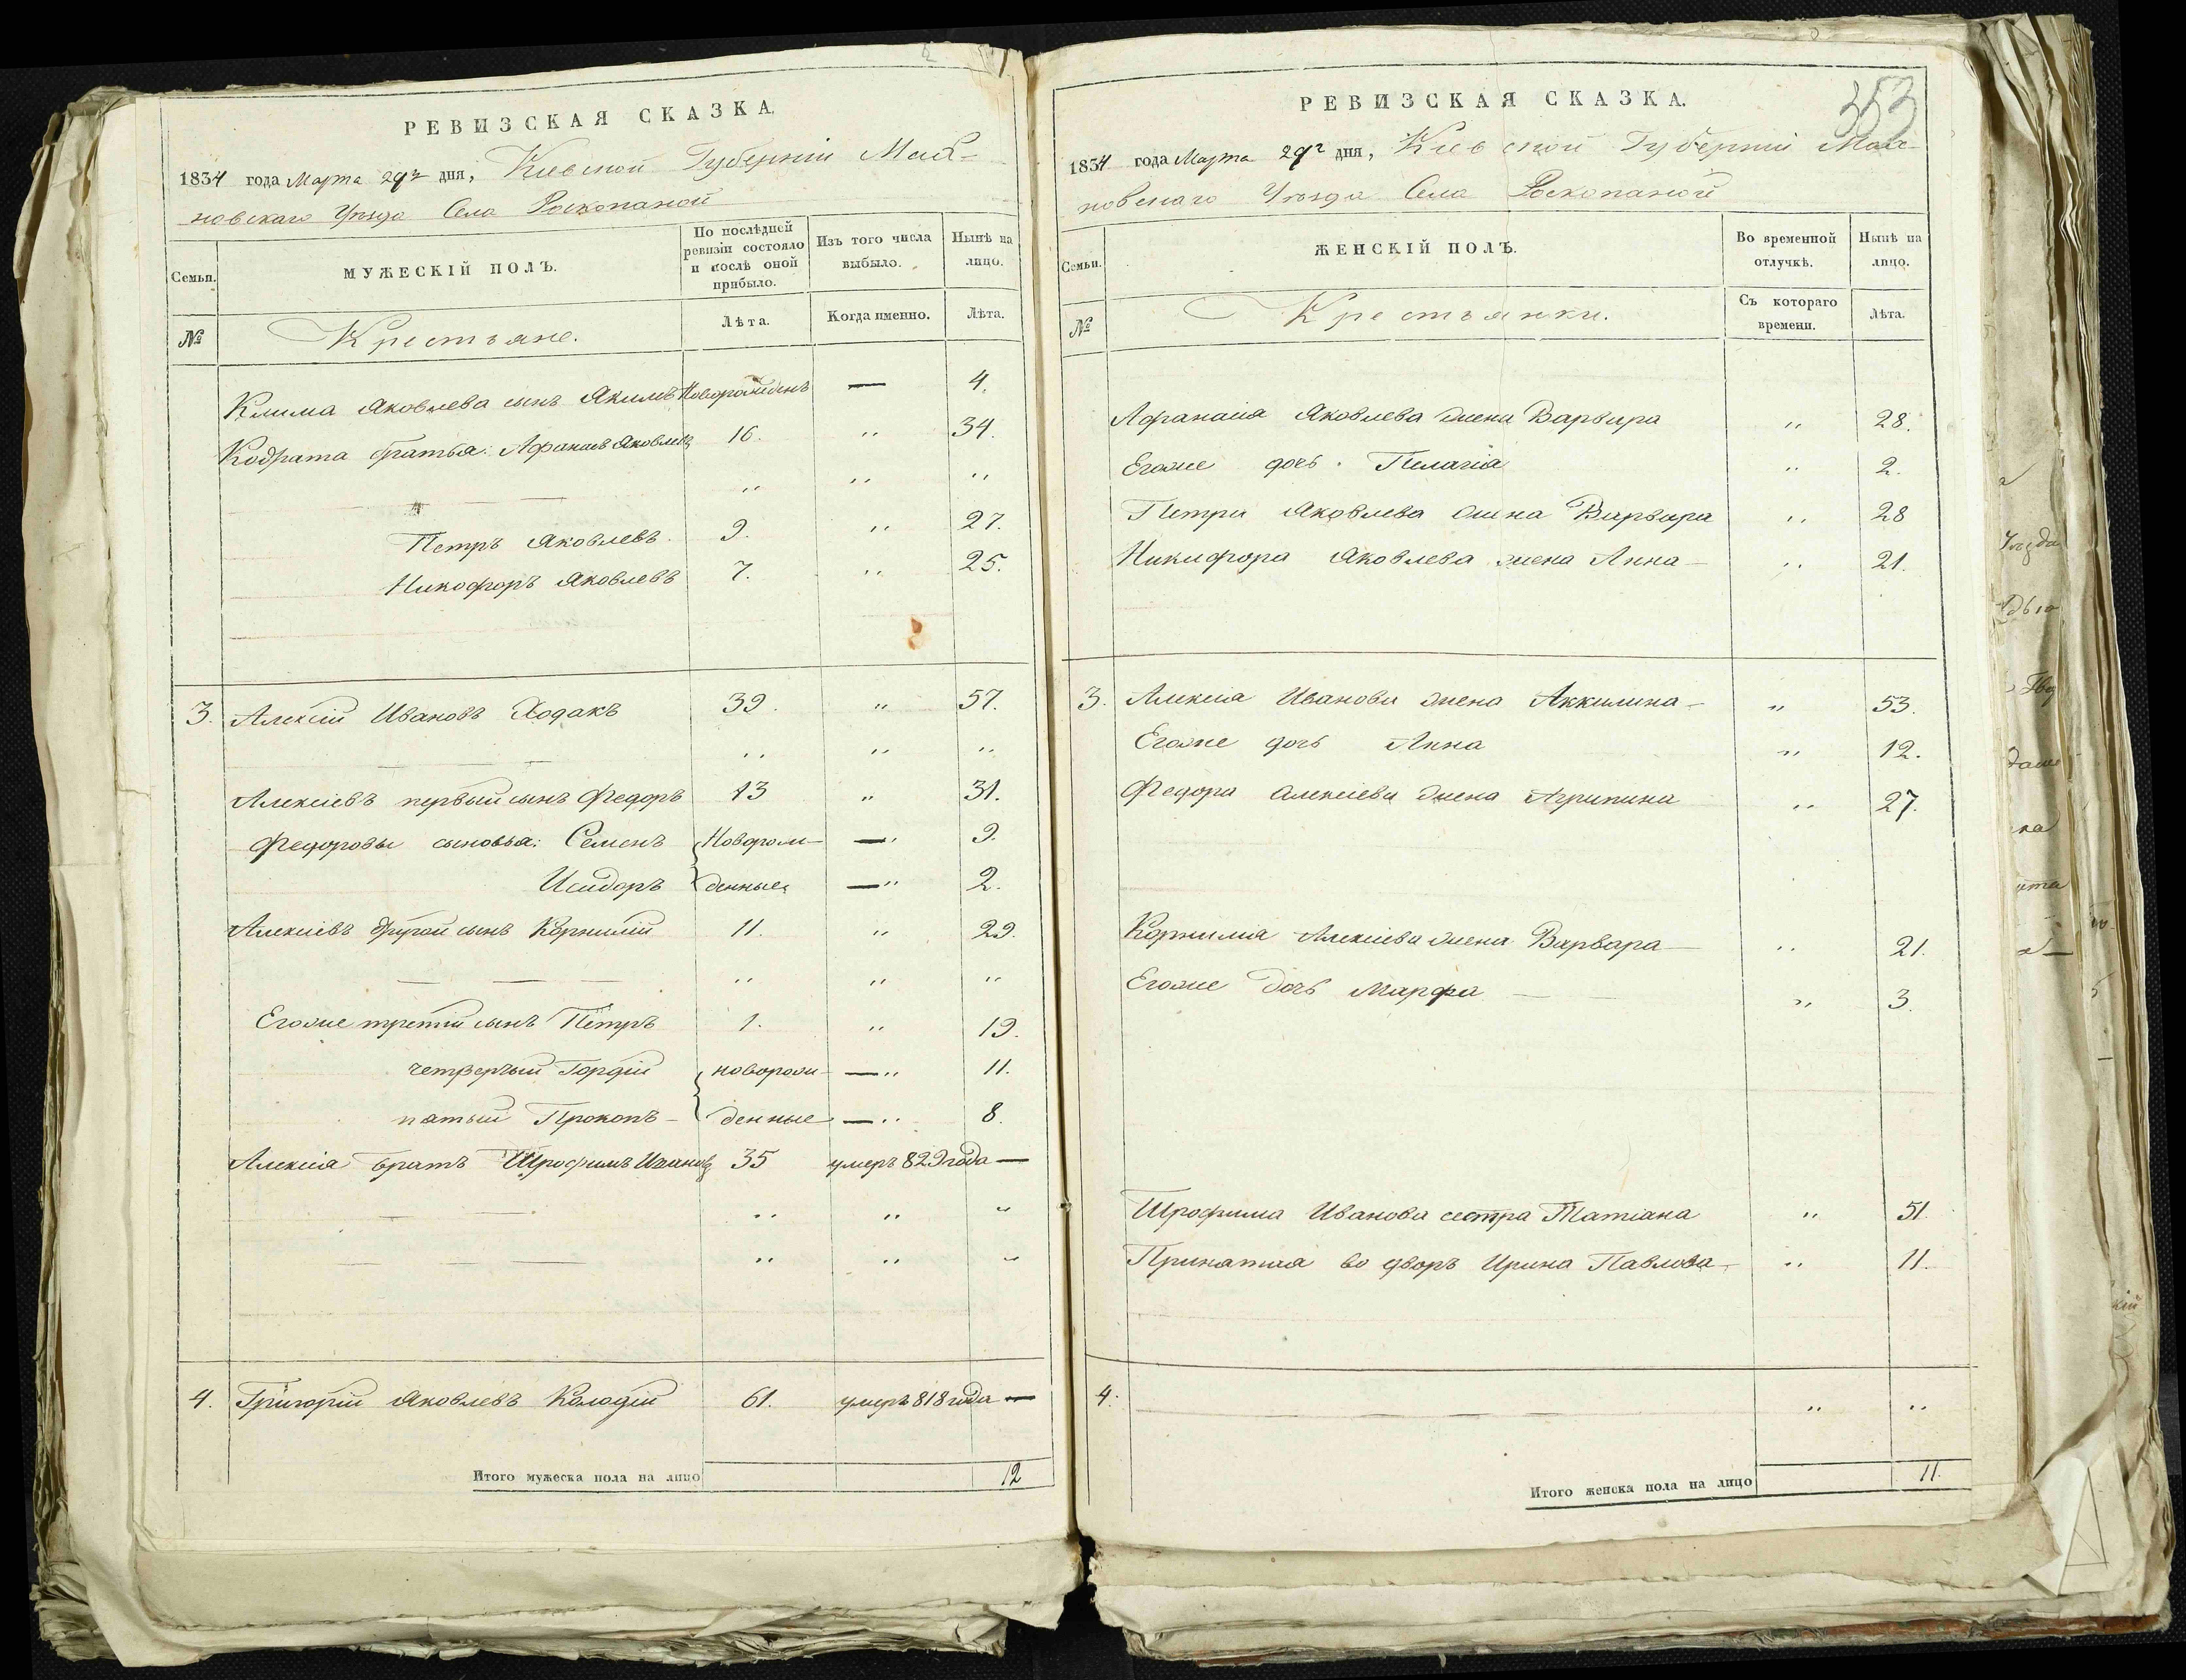 РЕВИЗСКАЯ СКАЗКА.
1834 года Марта 29го дня, Киевской Губерніи Мах-
новскаго Уѣзда Села Роскопаной
Семьи.
МУЖЕСКІЙ ПОЛЪ.
По послѣдней ревизіи состояло и послѣ оной прибыло.
Изъ того числа выбыло.
Нынѣ на лицо.
№
Крестьяне.
Лѣта.
Когда именно.
Лѣта.
Клима Яковлева сынъ Якимъ Новорожденъ — 4.
Кодрата братья: Афанасъ Яковлевъ 16. " 34.
" " "
Петръ Яковлевъ. 9. " 27.
Никофоръ Яковлевъ 7. " 25.
3. Алексій Ивановъ Ходакъ 39. " 57.
" " "
Алексіевъ первый сынъ Федоръ 13 " 31.
Федоровы сыновья: Семенъ Новорож- — " 9.
Исидоръ денные — " 2.
Алексіевъ другой сынъ Корнилій 11. " 29.
" " "
Егоже третій сынъ Петръ 1. " 19.
четвертый Гордій новорож- — " 11.
пятый Прокопъ - денные — " 8.
Алексія братъ Трофимъ Ивановъ 35 умеръ 829 года —
" " "
" " "
4. Григорій Яковлевъ Колодій 61. умеръ 818 года —
Итого мужеска пола на лицо 12
353
РЕВИЗСКАЯ СКАЗКА.
1834 года Марта 29го дня, Киевской Губерніи Мах-
новскаго Уѣзда Села Роскопаной
Семьи.
ЖЕНСКІЙ ПОЛЪ.
Во временной отлучкѣ.
Нынѣ на лицо.
№
Крестьянки.
Съ котораго времени.
Лѣта.
Афанасія Яковлева жена Варвара " 28.
Егоже дочь. Пелагія " 2.
Петра Яковлева жена Варвара " 28
Никифора Яковлева жена Анна — " 21.
3. Алексія Иванова жена Аккилина - " 53.
Егоже дочь Анна " 12.
Федора Алексіева жена Агрипина " 27.
Корнилія Алексіева жена Варвара — " 21.
Егоже дочь Марфа — — " 3.
Трофима Иванова сестра Татіана " 51.
Принятая во дворъ Ирина Павлова - " 11.
4. — — — " "
Итого женска пола на лицо 11.